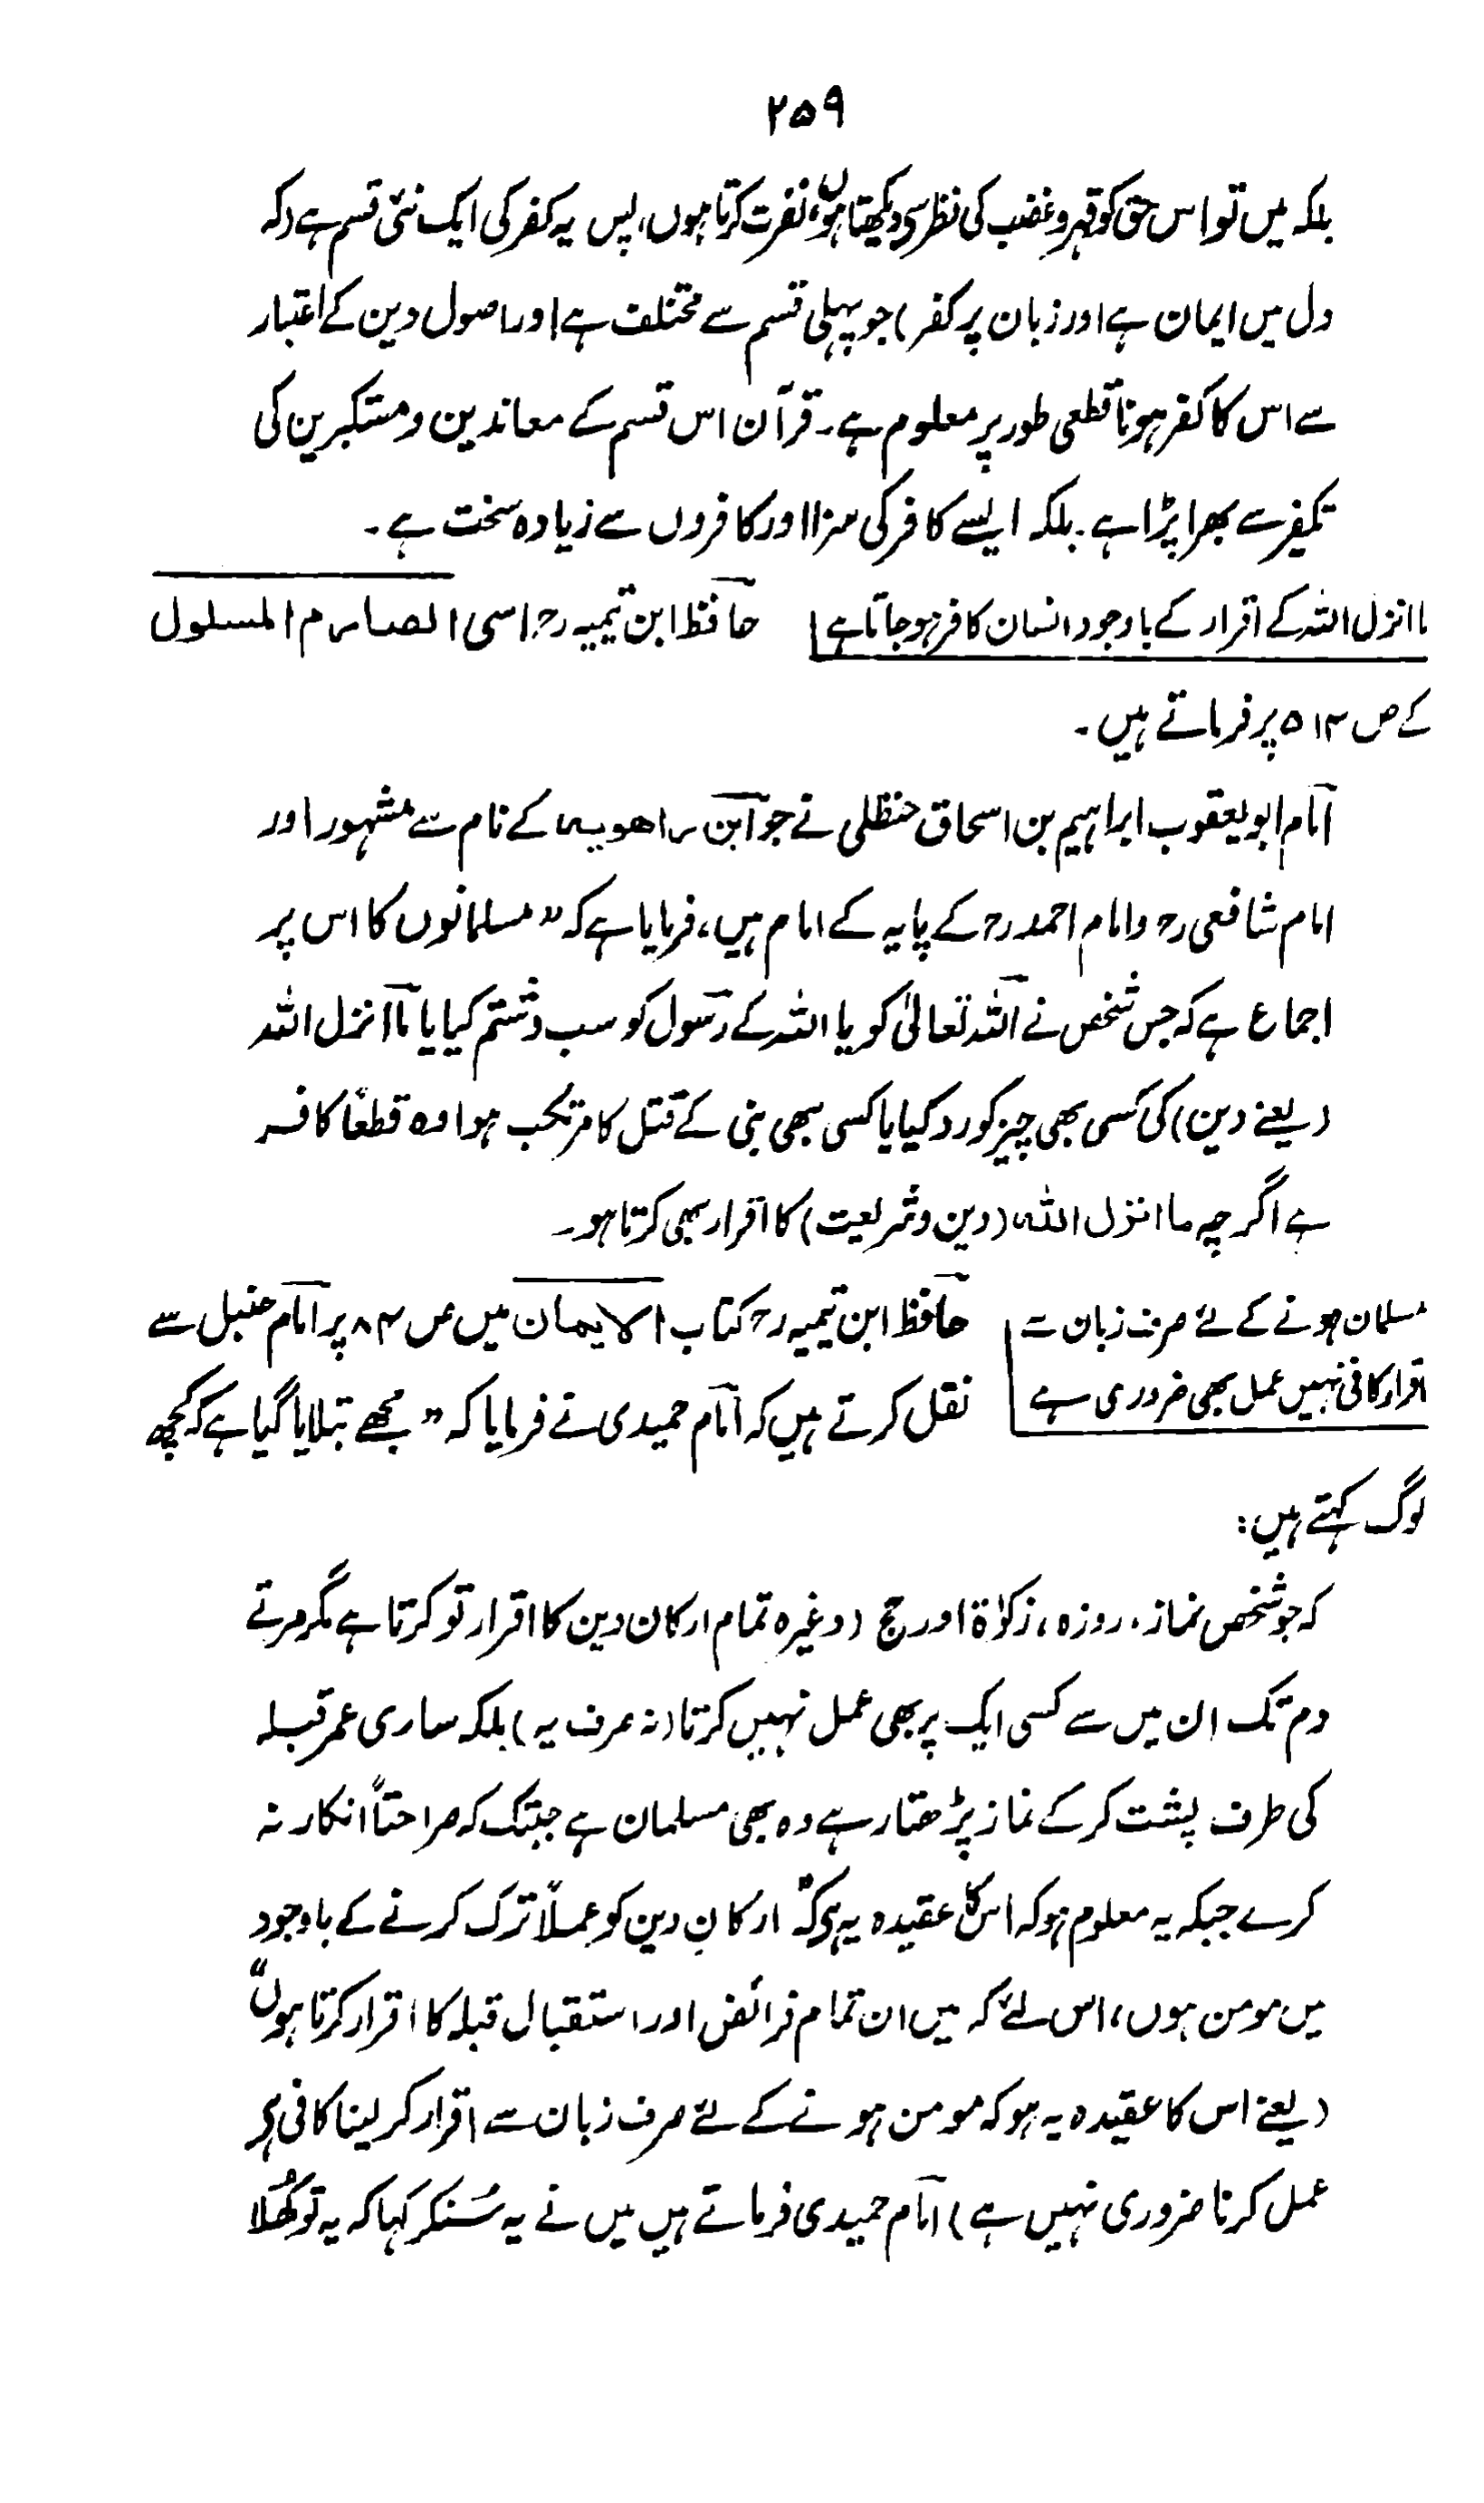 ۲۵۹
بلکہ میں تو اس حق کو قہر و غضب کی نظر سی دیکھتا ہوں، نفرت کرتا ہوں، پس یہ کفر کی ایک نئی قسم ہے (کہ
دل میں ایمان ہے اور زبان پر کفر) جو پہلی قسم سے مختلف ہے اور اصول دین کے اعتبار
سے اس کا کفر ہونا قطعی طور پر معلوم ہے۔ قرآن اس قسم کے معاندین و متکبرین کی
تکفیر سے بھرا پڑا ہے. بلکہ ایسے کافر کی سزا اور کافروں سے زیادہ سخت ہے۔
ما انزل اللہ کے اقرار کے باوجود انسان کافر ہو جاتا ہے حافظ ابن تیمیہ رح اسی الصارم المسلول
کے ص ۵۱۴ پر فرماتے ہیں۔
امام ابو یعقوب ابراہیم بن اسحاق حنظلی نے جو ابن راھویہ کے نام سے مشہور اور
امام شافعی رح و امام احمد رح کے پایہ کے امام ہیں، فرمایا ہے کہ ”مسلمانوں کا اس پر
اجماع ہے کہ جس شخص نے اللہ تعالیٰ کو یا اللہ کے رسول کو سب و شتم کیا یا ما انزل اللہ
(یعنے دین) کی کسی بھی چیز کو رد کیا یا کسی بھی نبی کے قتل کا مرتکب ہوا وہ قطعًا کافر
ہے اگر چہ ما انزل اللہ (دین و شریعت) کا اقرار بھی کرتا ہو۔
مسلمان ہونے کے لئے صرف زبان سے حافظ ابن تیمیہ رح کتاب الایمان میں ص ۸۴ پر امام حنبل سے
اقرار کافی نہیں عمل بھی ضروری ہے نقل کرتے ہیں کہ امام حمیدی نے فرمایا کہ ”مجھے بتلایا گیا ہے کہ کچھ
لوگ کہتے ہیں:
کہ جو شخص نماز، روزہ، زکوٰۃ اور حج (وغیرہ تمام ارکان دین کا اقرار تو کرتا ہے مگر مرتے
دم تک ان میں سے کسی ایک پر بھی عمل نہیں کرتا (نہ صرف یہ) بلکہ ساری عمر قبلہ
کی طرف پشت کر کے نماز پڑھتا رہے وہ بھی مسلمان ہے جبتک کہ صراحتاً انکار نہ
کرے جبکہ یہ معلوم ہو کہ اس کا عقیدہ یہ ہی کہ ”ارکانِ دین کو عملاً ترک کرنے کے باوجود
میں مومن ہوں، اس لئے کہ میں ان تمام فرائض اور استقبال قبلہ کا اقرار کرتا ہوں“
(یعنے اس کا عقیدہ یہ ہو کہ مومن ہونے کے لئے صرف زبان سے اقرار کر لینا کافی ہی
عمل کرنا ضروری نہیں ہے) امام حمیدی فرماتے ہیں میں نے یہ سُنکر کہا کہ یہ تو کُھلا